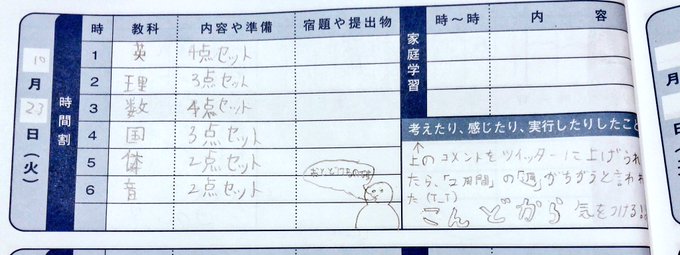 10
月
23
日(火)
時間割
時 教科 内容や準備 宿題や提出物
1 英 4点セット
2 理 3点セット
3 数 4点セット
4 国 3点セット
5 体 2点セット
6 音 2点セット
家庭学習
時〜時 内容
考えたり、感じたり、実行したりしたこと
↑上のコメントをツイッターに上げられ
たら、「2 間」の「週」がちがうと言われ
た(T_T)
こんどから 気をつける!!
月
日(火)